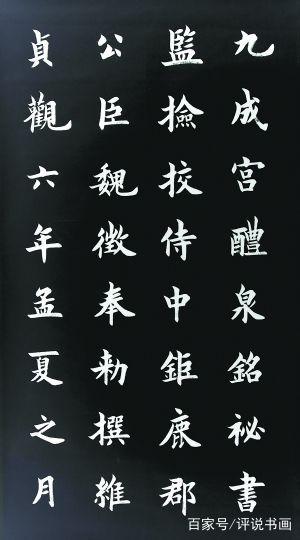 九成宮醴泉銘祕書
監撿挍侍中鉅鹿郡
公臣魏徵奉勑撰維
貞觀六年孟夏之月
百家号/评说书画